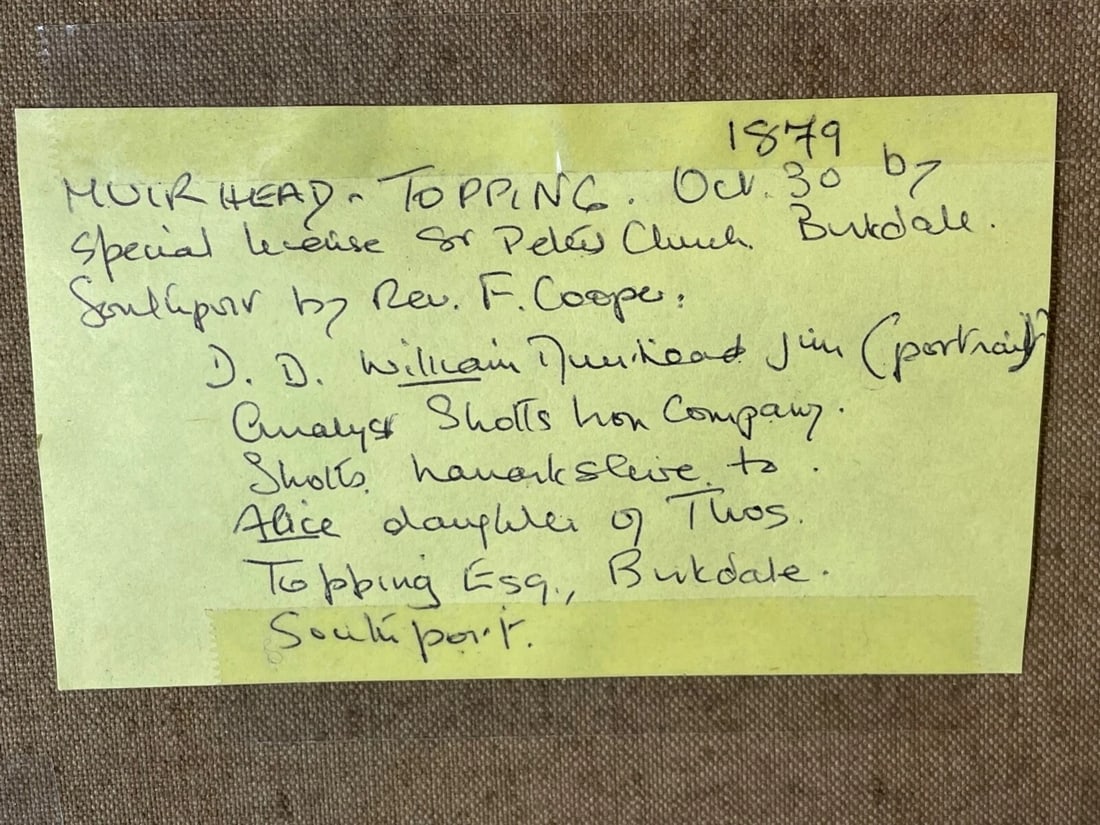 1879
MUIRHEAD - TOPPING. Oct. 30 by
Special license St Peters Church. Birkdale.
Southport by Rev. F. Cooper,
D. D. William Muirhead Jun (portrait)
Analyst Shotts Iron Company.
Shotts, Lanarkshire, to
Alice daughter of Thos.
Topping Esq., Birkdale.
Southport.